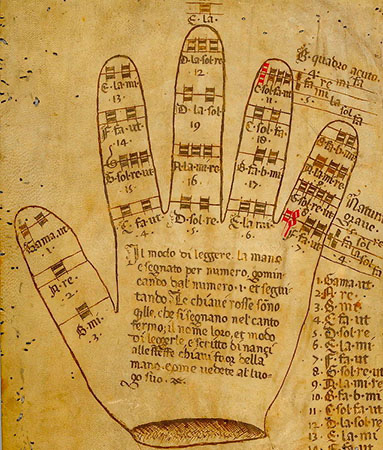 E·la·
D·la·sol·re
·12·
D·la·sol·
19
A·la·mi·re
·16·
D·sol·re
·5·
E·la·mi·
·13·
F·fa·ut
·14·
G·sol·re·ut
·15·
C·fa·ut
·4·
C·sol·fa·ut
·11·
C·sol·fa
·18·
B·fa·b·mi
·17·
E·la·mi·
·6·
B·fa·b·mi
A·la·mi·re
G·sol·re·ut
F·fa·ut
·7·
Gama·ut
·1·
A·re
·2·
B·mi
·3·
B quadro acuto
Natura
grave
Il modo di leggere la mano
e segnato per numero, comin
cando dal numero ·1· et segui
tando. Le chiave rosse sono
qlle, che si segnano nel canto
fermo; il nome loro, et modo
di leggerle, e scritto dinanci
alle stesse chiavi fuor della
mano, come vedete al luo
go suo.
1 Gama·ut
2 A·re
3 B·mi
4 C·fa·ut
5 D·sol·re
6 E·la·mi
7 F·fa·ut
8 G·sol·re·ut
9 A·la·mi·re
10 B·fa·b·mi
11 C·sol·fa·ut
12 D·la·sol·re
13 E·la·mi
14 F·fa·ut